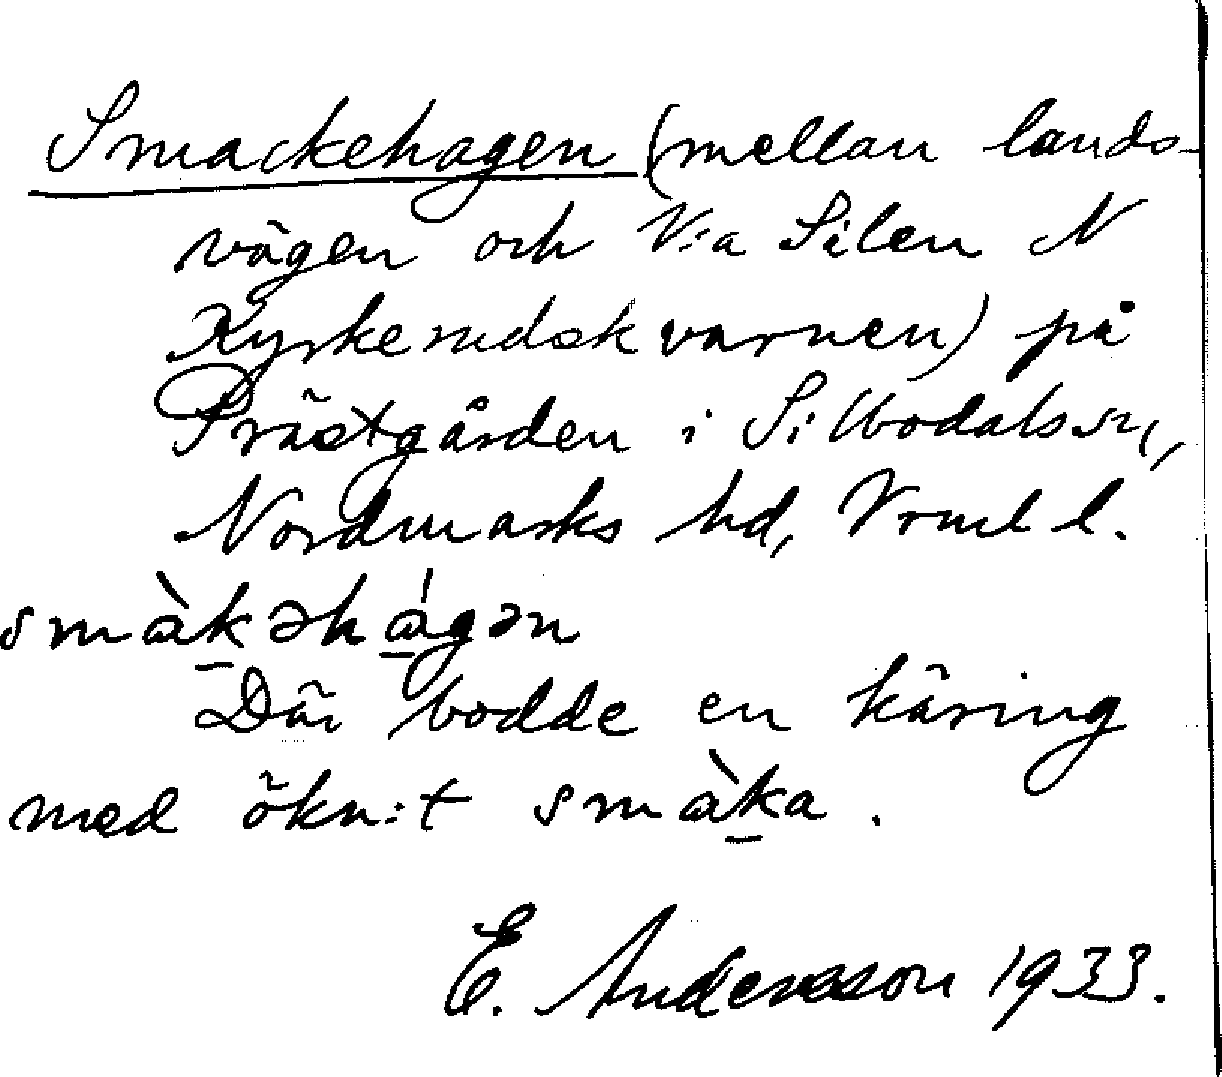 Smackehagen (mellan lands-
vägen och V:a Silen N
Kyrkerudskvarnen) på
Prästgården i Silbodals sn,
Nordmarks hd, Vrml l.
smàk̲əhág̲ən
Där bodde en käring
med ökn:t smàk̲a.
E. Andersson 1933.